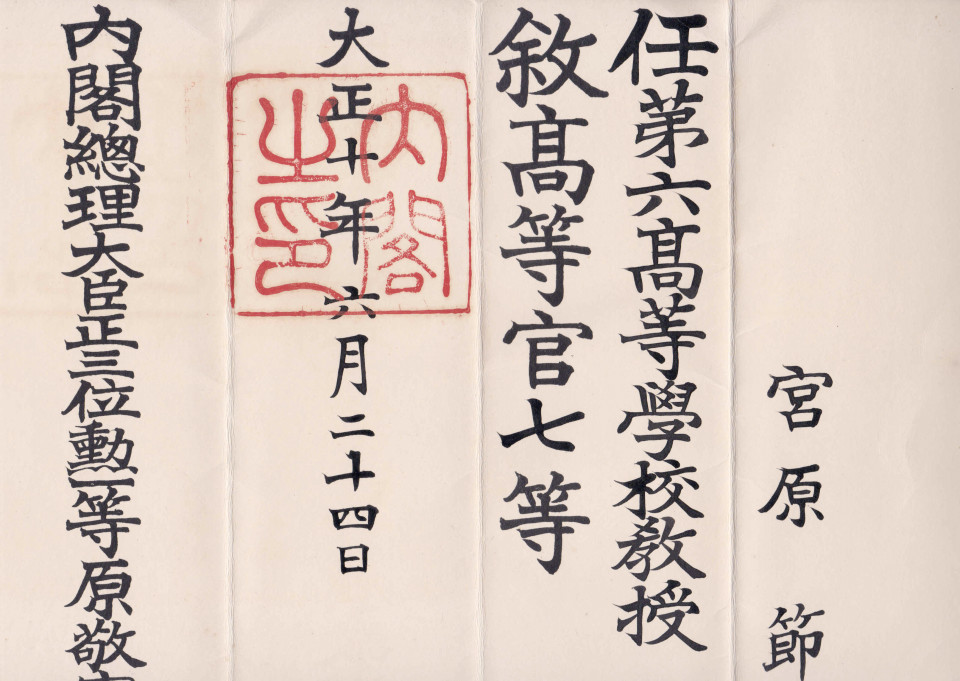 宮原節
任第六高等學校教授
敘高等官七等
大正十年六月二十四日
內閣之印
內閣總理大臣正三位勳一等原敬宣